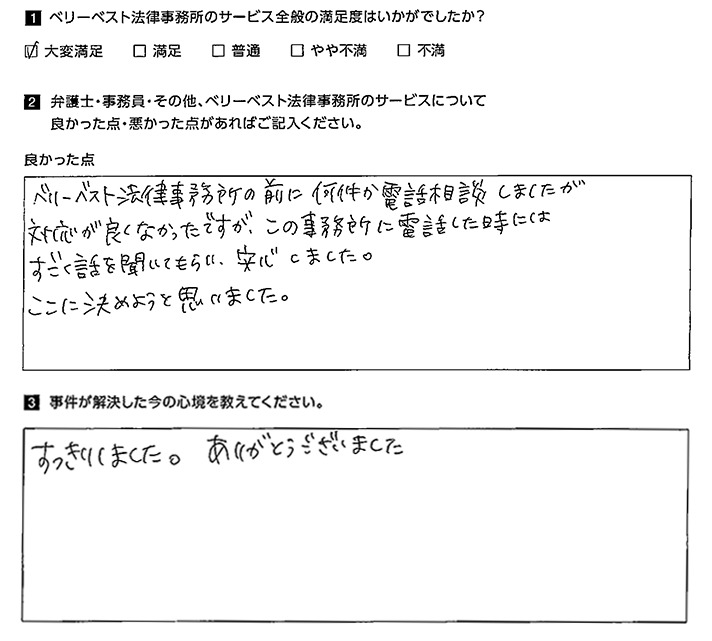 1 ベリーベスト法律事務所のサービス全般の満足度はいかがでしたか？
☑ 大変満足 □ 満足 □ 普通 □ やや不満 □ 不満
2 弁護士・事務員・その他、ベリーベスト法律事務所のサービスについて
良かった点・悪かった点があればご記入ください。
良かった点
ベリーベスト法律事務所の前に何件か電話相談しましたが
対応が良くなかったですが、この事務所に電話した時には
すごく話を聞いてもらい、安心しました。
ここに決めようと思いました。
3 事件が解決した今の心境を教えてください。
すっきりしました。 ありがとうございました